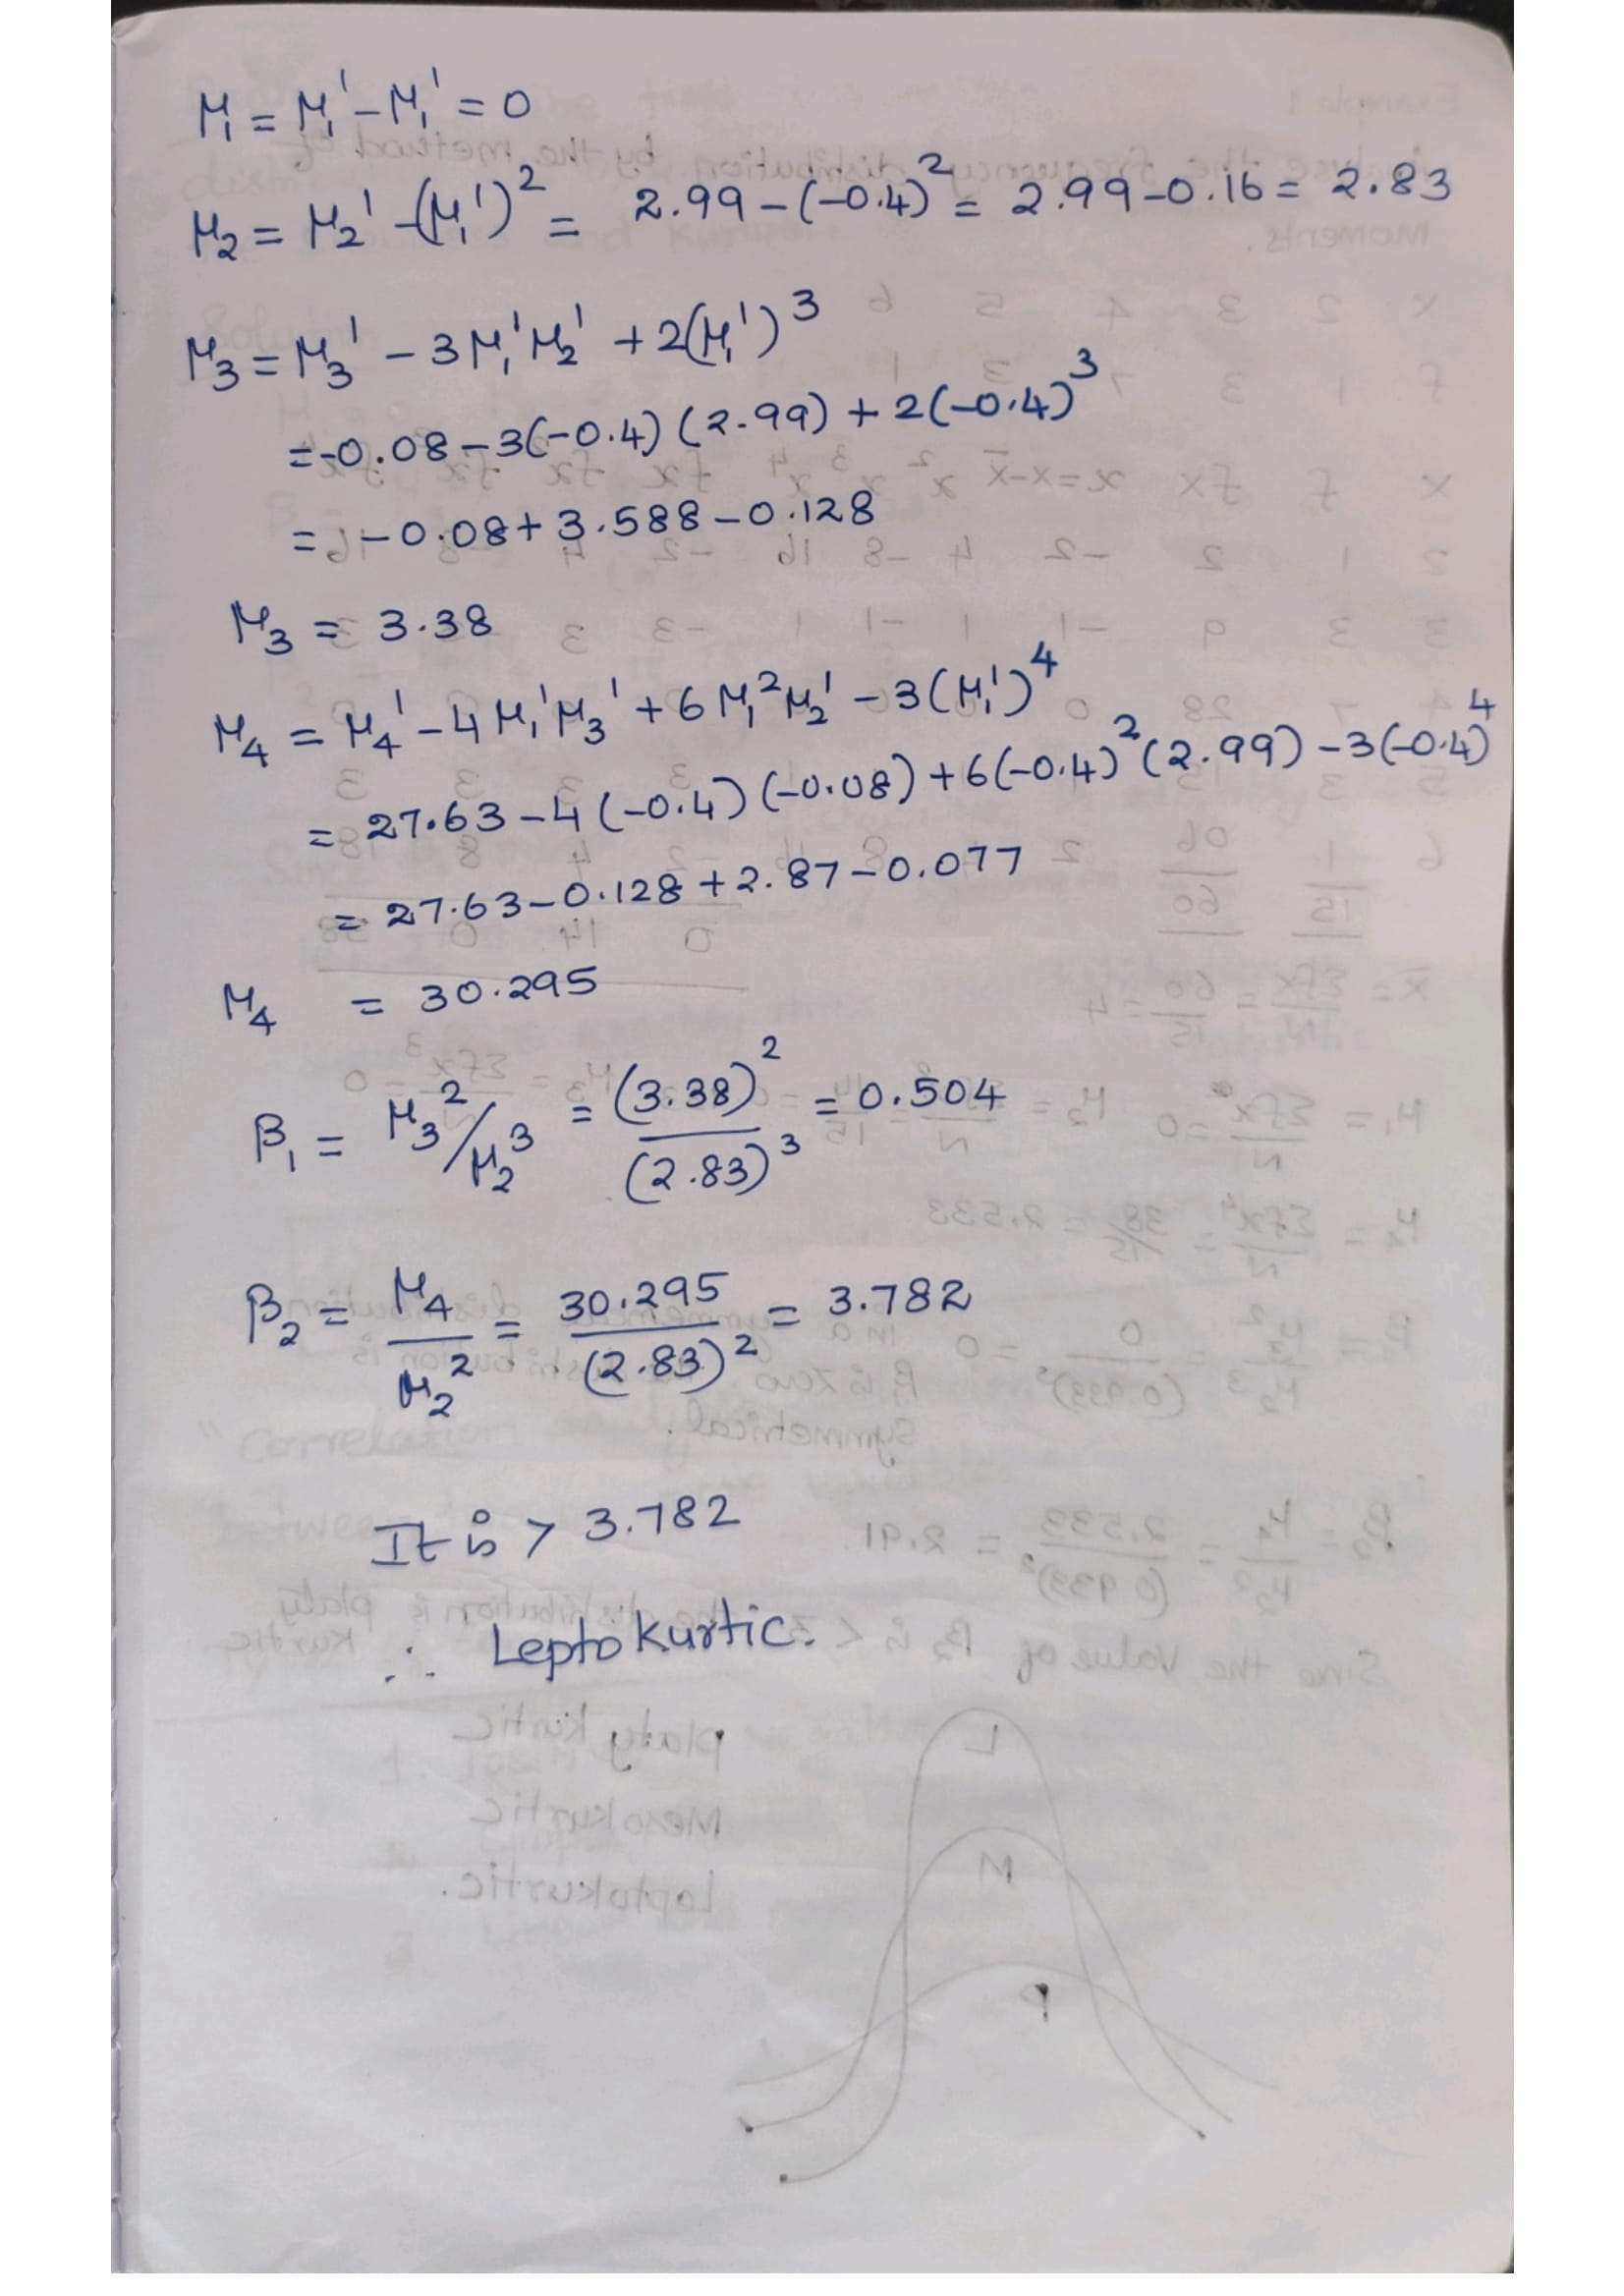 μ₁ = μ₁' - μ₁' = 0
μ₂ = μ₂' - (μ₁')² = 2.99 - (-0.4)² = 2.99 - 0.16 = 2.83
μ₃ = μ₃' - 3μ₁'μ₂' + 2(μ₁')³
= -0.08 - 3(-0.4) (2.99) + 2(-0.4)³
= -0.08 + 3.588 - 0.128
μ₃ = 3.38
μ₄ = μ₄' - 4μ₁'μ₃' + 6μ₁²μ₂' - 3(μ₁')⁴
= 27.63 - 4(-0.4) (-0.08) + 6(-0.4)² (2.99) - 3(-0.4)⁴
= 27.63 - 0.128 + 2.87 - 0.077
μ₄ = 30.295
β₁ = μ₃²/μ₂³ = (3.38)²/(2.83)³ = 0.504
β₂ = μ₄/μ₂² = 30.295/(2.83)² = 3.782
It is > 3.782
∴ Leptokurtic.